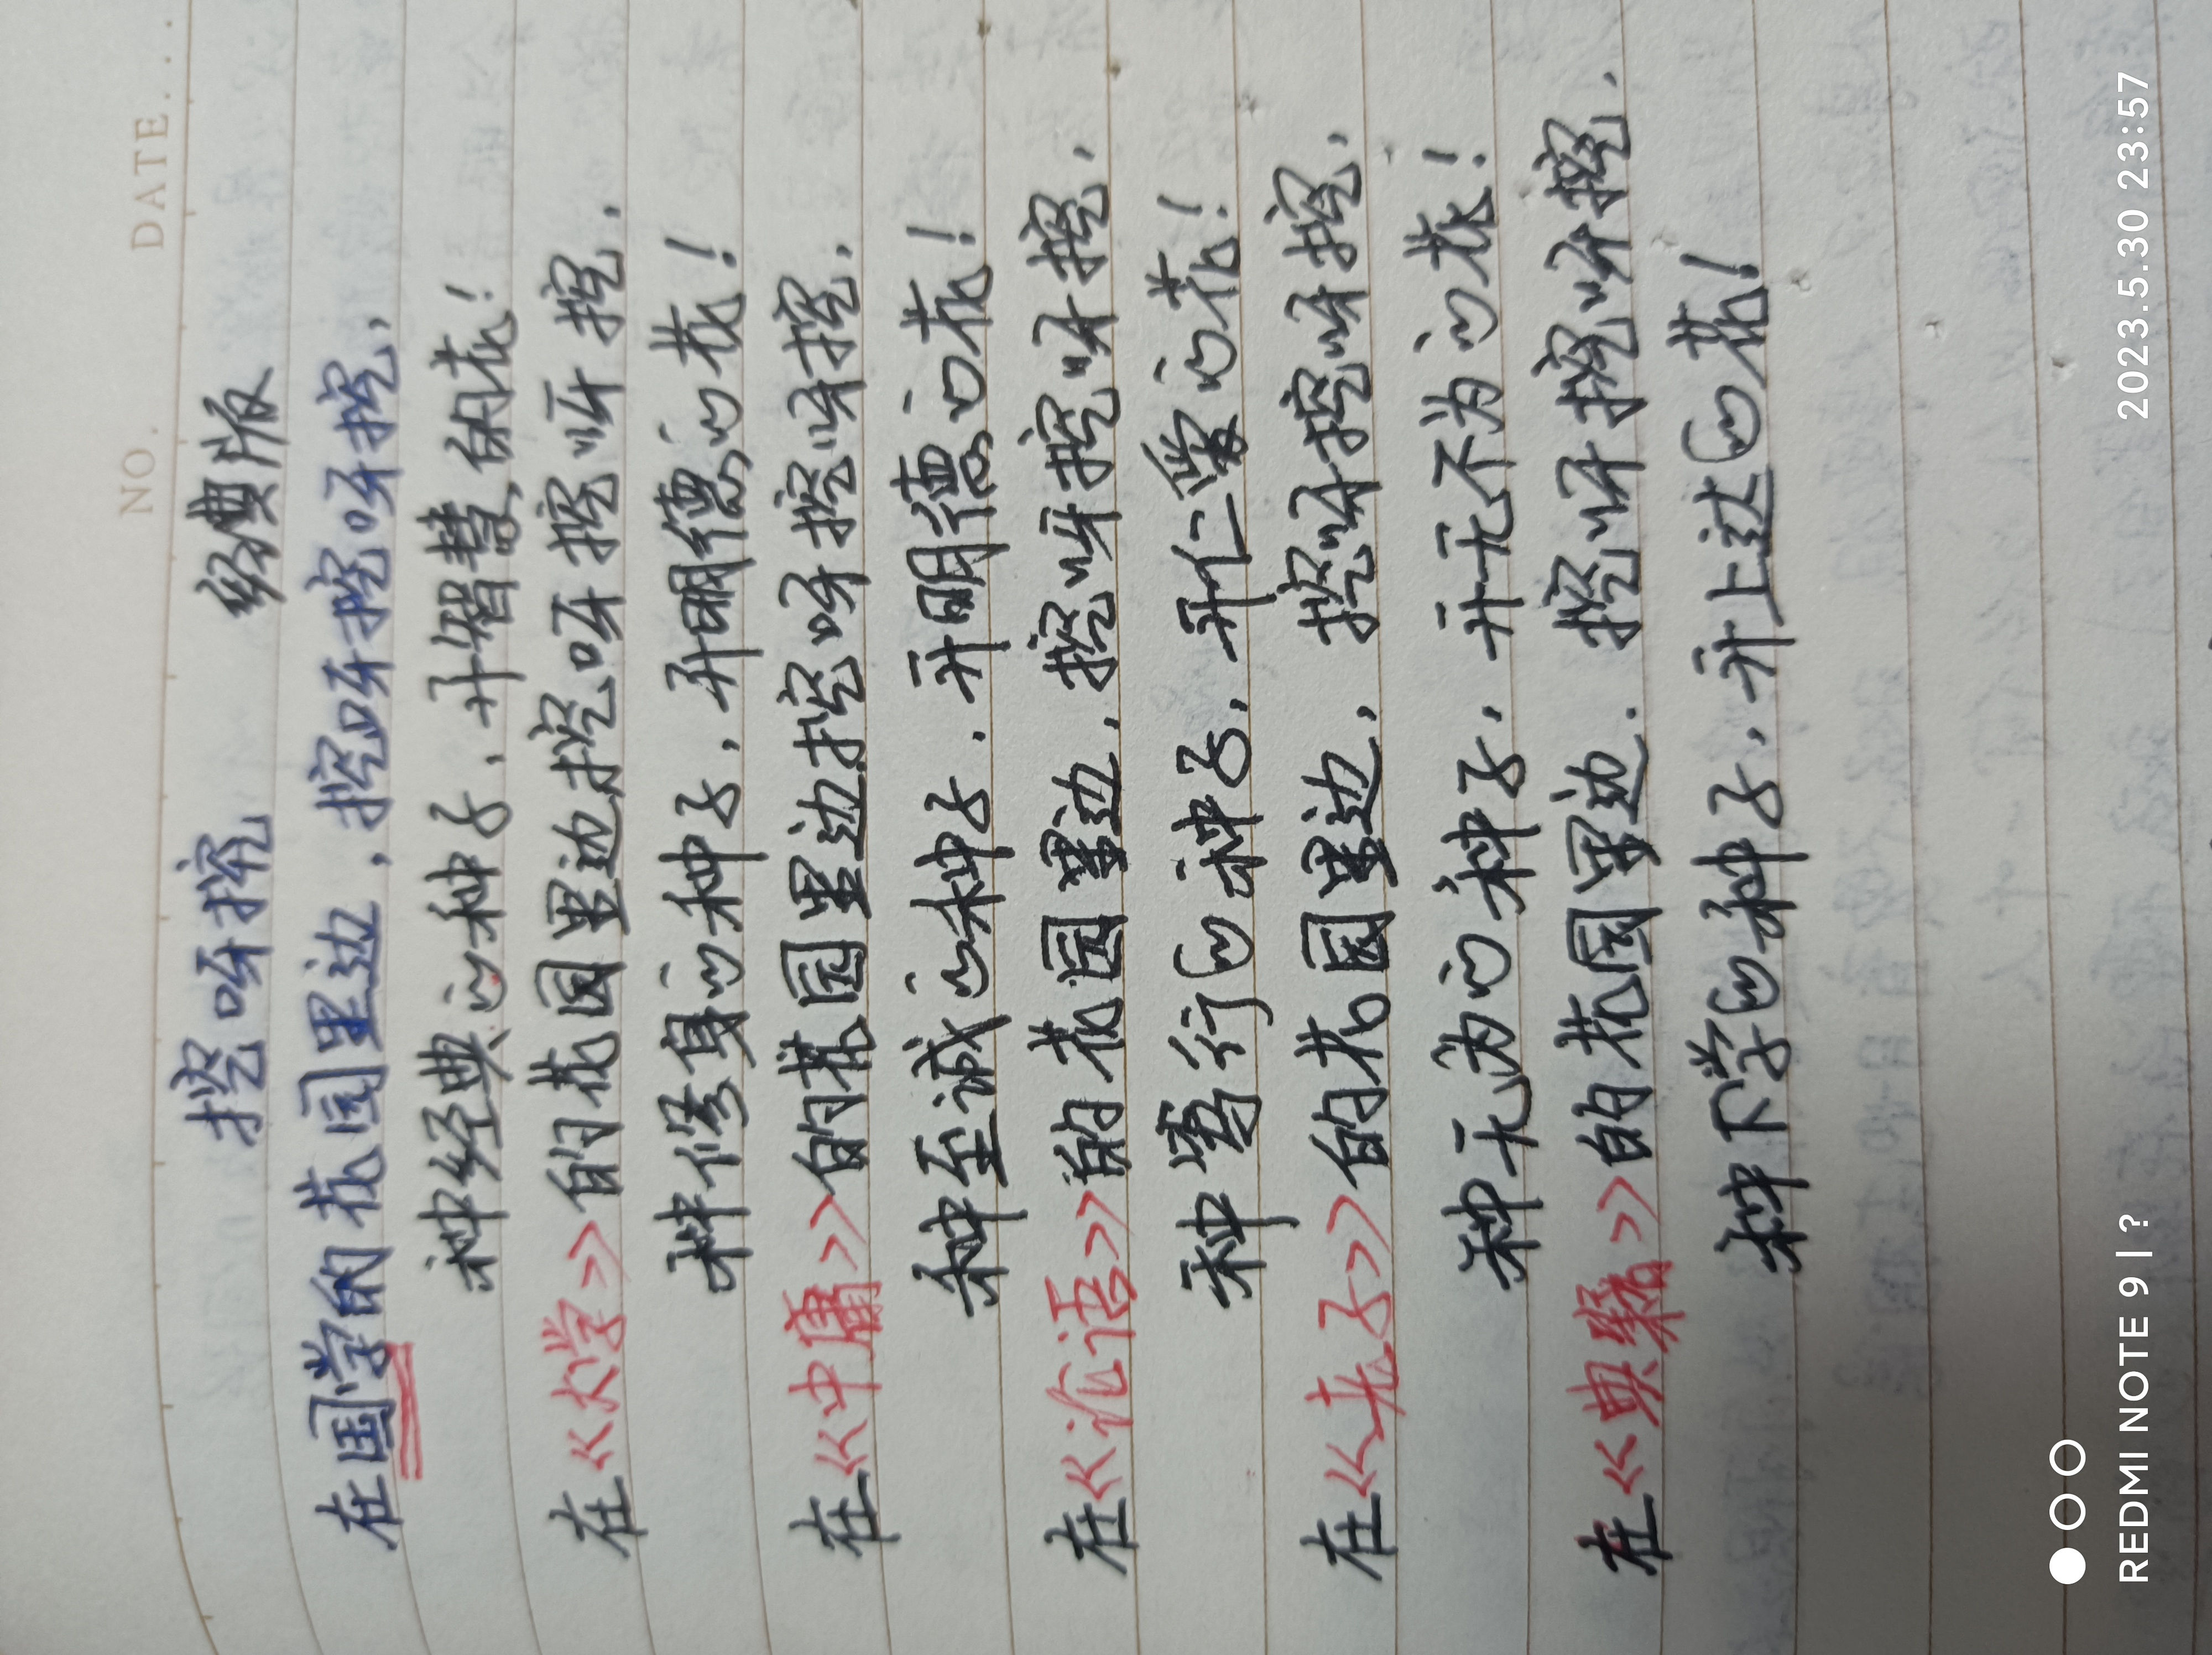 NO. DATE...
挖呀挖 经典版
在国学的花园里边，挖呀挖呀挖，
种经典的种子，开智慧的花！
在《大学》的花园里边挖呀挖呀挖，
种修身的种子，开明德的花！
在《中庸》的花园里边挖呀挖呀挖，
种至诚的种子，开明德的花！
在《论语》的花园里边，挖呀挖呀挖，
种笃行的种子，开仁爱的花！
在《老子》的花园里边，挖呀挖呀挖，
种无为的种子，开无不为的花！
在《典籍》的花园里边，挖呀挖呀挖，
种下学的种子，开上达的花！
REDMI NOTE 9 | ? 2023.5.30 23:57